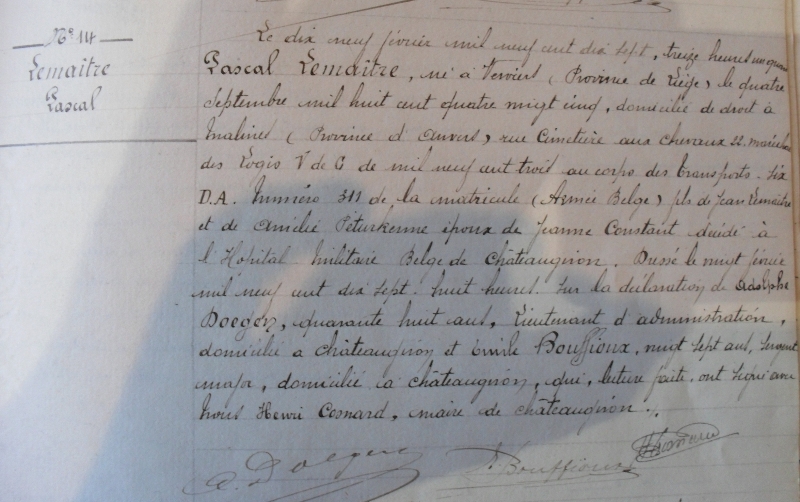 N° 14
Lemaître
Pascal
Le dix neuf février mil neuf cent dix sept, treize heures un quart
Pascal Lemaître, né à Verviers (Province de Liège) le quatre
Septembre mil huit cent quatre vingt cinq, domicilié de droit à
Malines (Province d'Anvers) rue Cimetière aux chevaux 22. maréchal
des Logis V de C de mil neuf cent trois au corps des transports. Six
D.A. Numéro 311 de la matricule (Armée Belge) fils de Jean Lemaître
et de Amélie Péturkenne époux de Jeanne Constant décédé à
l'Hopital Militaire Belge de Châteaugiron. Dressé le vingt février
mil neuf cent dix sept. huit heures. Sur la déclaration de Adolphe
Doegen, quarante huit ans, Lieutenant d'administration,
domicilié à Châteaugiron et Emile Bouffioux, vingt sept ans, Sergent
major, domicilié à Châteaugiron, qui, lecture faite, ont signé avec
Nous Henri Cosnard, maire de Châteaugiron.
A. Doegen
E. Bouffioux